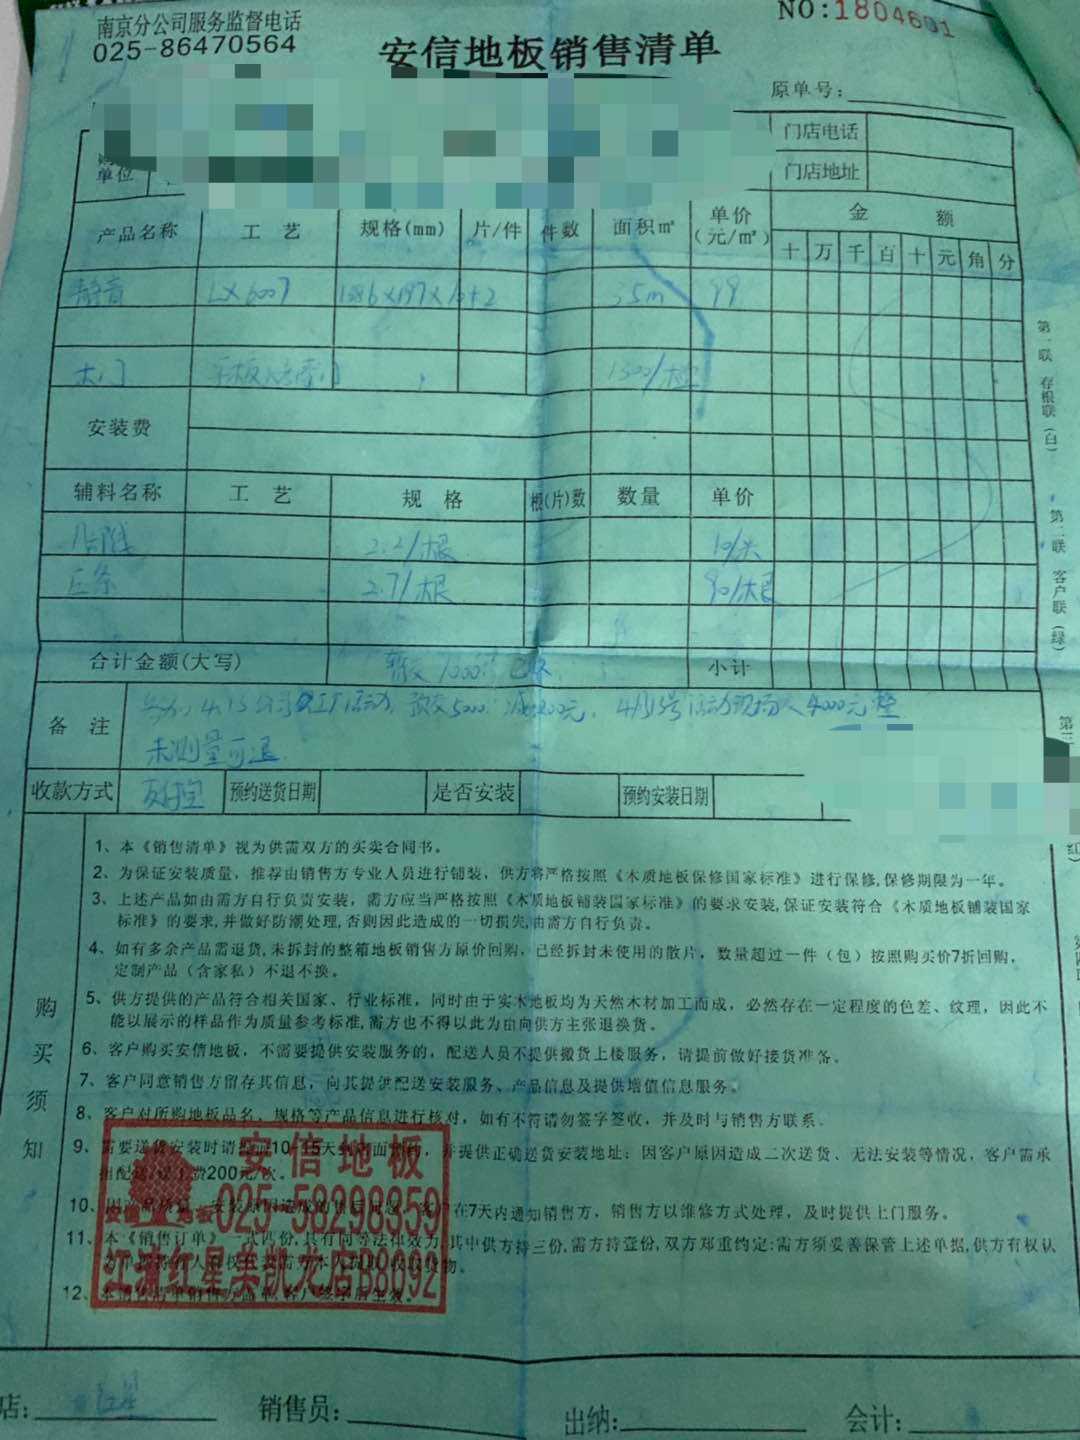 南京分公司服务监督电话
025-86470564
NO:1804601
安信地板销售清单
原单号:
门店电话
单位
门店地址
产品名称 工艺 规格(mm) 片/件 件数 面积㎡ 单价(元/㎡) 金额
十 万 千 百 十 元 角 分
静音 LX6007 35m 99
木门 1500/樘
安装费
辅料名称 工艺 规格 根(片)数 数量 单价
2.2/根 10/米
压条 2.7/根 90/根
合计金额(大写) 1000 小计
备注
未测量可退
收款方式 预约送货日期 是否安装 预约安装日期
第一联 存根联(白)
第二联 客户联(绿)
购买须知
1、本《销售清单》视为供需双方的买卖合同书。
2、为保证安装质量，推荐由销售方专业人员进行铺装，供方将严格按照《木质地板保修国家标准》进行保修,保修期限为一年。
3、上述产品如由需方自行负责安装，需方应当严格按照《木质地板铺装国家标准》的要求安装,保证安装符合《木质地板铺装国家
标准》的要求,并做好防潮处理,否则因此造成的一切损失,由需方自行负责。
4、如有多余产品需退货,未拆封的整箱地板销售方原价回购，已经拆封未使用的散片，数量超过一件（包）按照购买价7折回购，
定制产品（含家私）不退不换。
5、供方提供的产品符合相关国家、行业标准，同时由于实木地板均为天然木材加工而成，必然存在一定程度的色差、纹理，因此不
能以展示的样品作为质量参考标准,需方也不得以此为由向供方主张退换货。
6、客户购买安信地板，不需要提供安装服务的，配送人员不提供搬货上楼服务，请提前做好接货准备。
7、客户同意销售方留存其信息，向其提供配送安装服务、产品信息及提供增值信息服务。
8、客户对所购地板品名、规格等产品信息进行核对，如有不符请勿签字签收，并及时与销售方联系。
9、需要送货安装时请提前10-15天，并提供正确送货安装地址；因客户原因造成二次送货、无法安装等情况，客户需承
担配送费200元/次。
10、客户在7天内通知销售方，销售方以维修方式处理，及时提供上门服务。
11、本《销售订单》一式四份,具有同等法律效力,其中供方持三份,需方持壹份,双方郑重约定:需方须妥善保管上述单据,供方有权认
12、
安信地板
安信地板 025-58298359
江浦红星美凯龙店B8092
店: 销售员: 出纳: 会计: